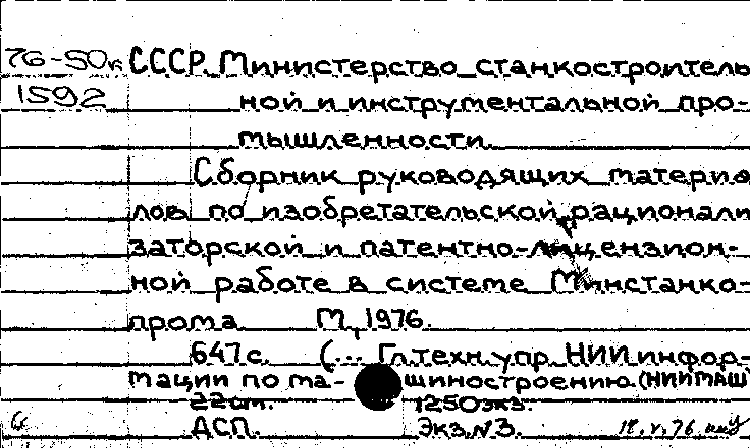 76-50к СССР. Министерство станкостроитель
1592 ной и инструментальной про-
мышленности.
Сборник руководящих материа
лов по изобретательской, рационали
заторской и патентно-лицензион-
ной работе в системе Минстанко-
прома. М, 1976.
647 с. (... Гл. техн. упр. НИИ инфор-
мации по ма-шиностроению. (НИИМАШ)
22 см. 1250 экз.
ДСП. Экз. N3.